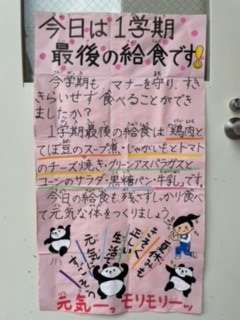 今日は1学期
最後の給食です!
今学期も マナーを守り、すき
きらいせず 食べることができ
ましたか?
1学期最後の給食は、鶏肉と
てぼ豆のスープ煮・じゃがいもとトマト
のチーズ焼き・グリーンアスパラガスと
コーンのサラダ・黒糖パン・牛乳です。
今日の給食も残さずしっかり食べ
て元気な体をつくりましょう。
夏休みも
きそく
正しい
生活を
元気に
元気ーっ モリモリーッ